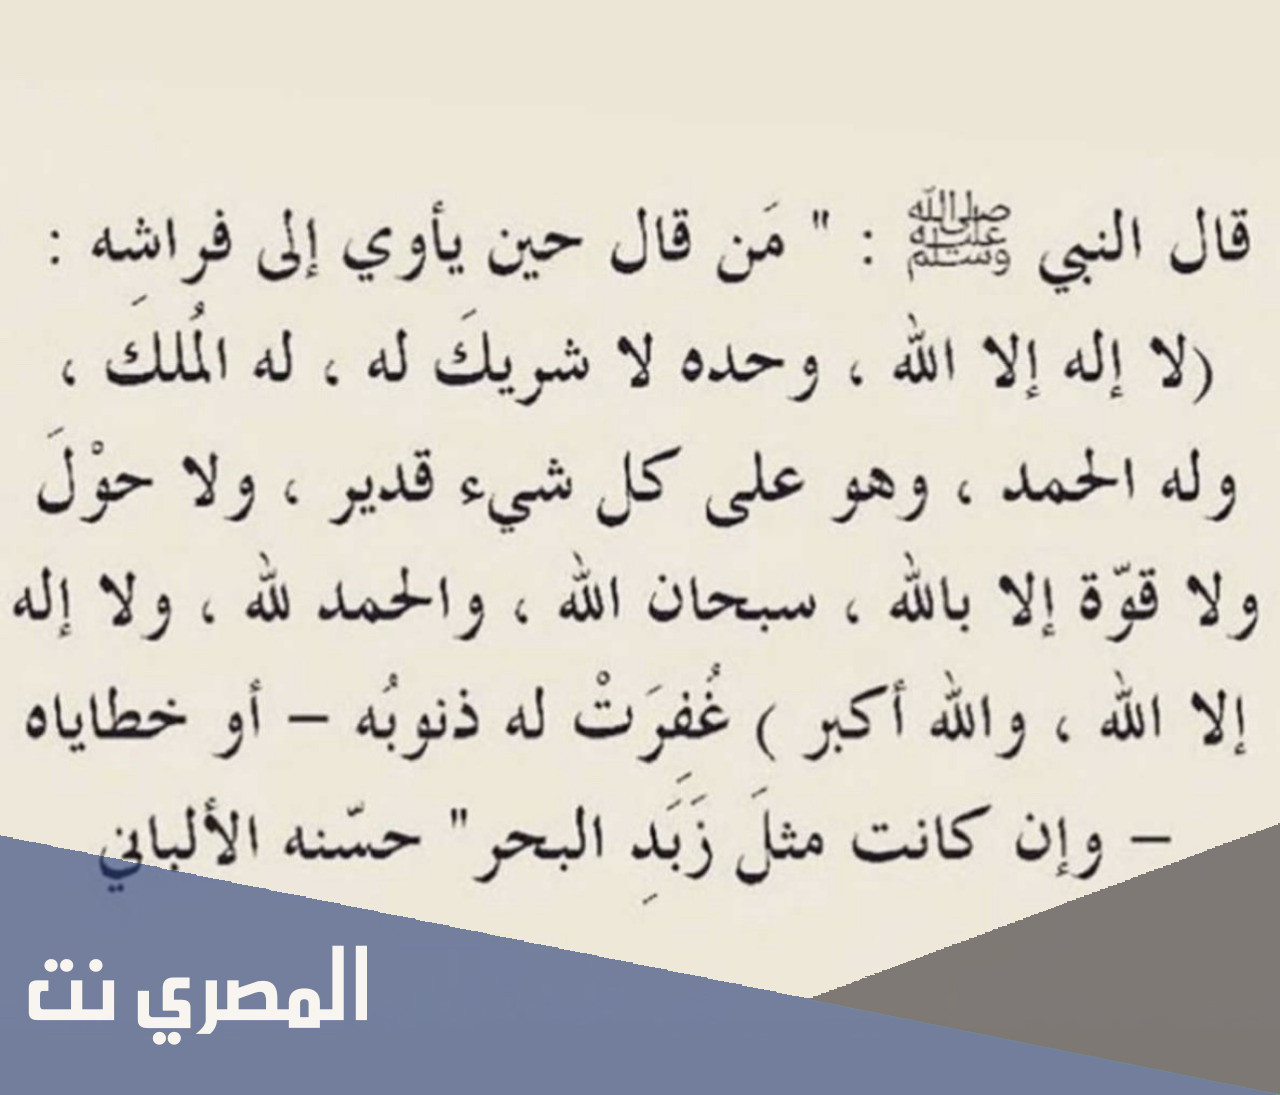 قال النبي ﷺ : " مَن قال حين يأوي إلى فراشه :
(لا إله إلا الله ، وحده لا شريكَ له ، له المُلكَ ،
وله الحمد ، وهو على كل شيء قدير ، ولا حوْلَ
ولا قوّة إلا بالله ، سبحان الله ، والحمد لله ، ولا إله
إلا الله ، والله أكبر ) غُفِرَتْ له ذنوبُه – أو خطاياه
– وإن كانت مثلَ زَبَدِ البحر" حسّنه الألباني
المصري نت